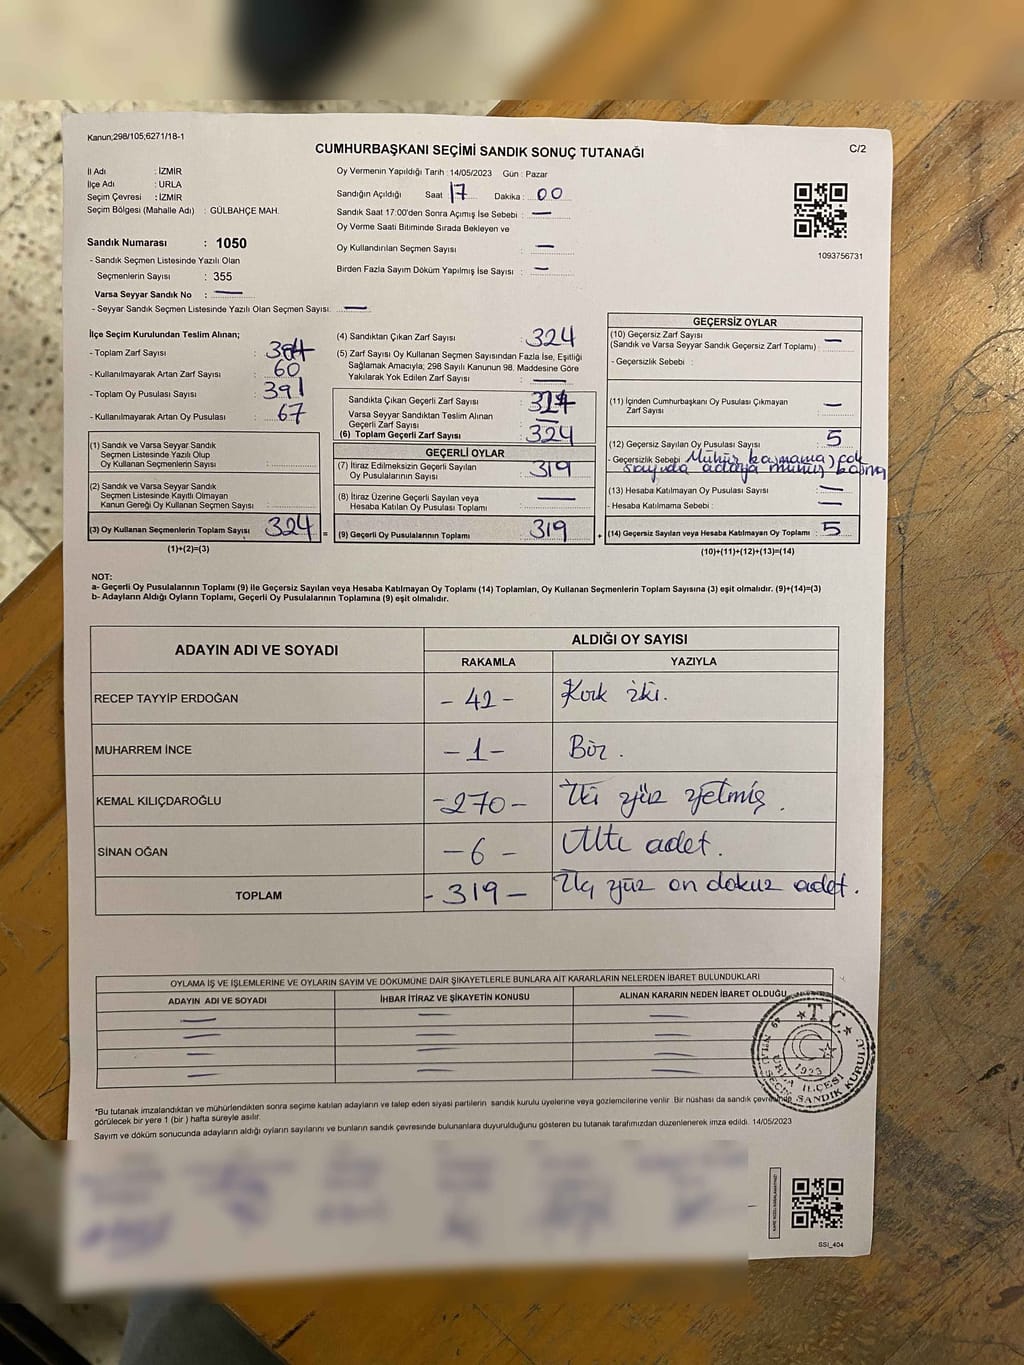 Kanun;298/105;6271/18-1
C/2
CUMHURBAŞKANI SEÇİMİ SANDIK SONUÇ TUTANAĞI
İl Adı : İZMİR
İlçe Adı : URLA
Seçim Çevresi : İZMİR
Seçim Bölgesi (Mahalle Adı) : GÜLBAHÇE MAH.
Sandık Numarası : 1050
- Sandık Seçmen Listesinde Yazılı Olan
Seçmenlerin Sayısı : 355
Varsa Seyyar Sandık No : —
- Seyyar Sandık Seçmen Listesinde Yazılı Olan Seçmen Sayısı: —
Oy Vermenin Yapıldığı Tarih : 14/05/2023 Gün : Pazar
Sandığın Açıldığı Saat 17 Dakika : 00
Sandık Saat 17:00'den Sonra Açımış İse Sebebi : —
Oy Verme Saati Bitiminde Sırada Bekleyen ve
Oy Kullandırılan Seçmen Sayısı : —
Birden Fazla Sayım Döküm Yapılmış İse Sayısı : —
1093756731
İlçe Seçim Kurulundan Teslim Alınan;
- Toplam Zarf Sayısı :
- Kullanılmayarak Artan Zarf Sayısı : 60
- Toplam Oy Pusulası Sayısı : 391
- Kullanılmayarak Artan Oy Pusulası : 67
(1) Sandık ve Varsa Seyyar Sandık
Seçmen Listesinde Yazılı Olup
Oy Kullanan Seçmenlerin Sayısı :
(2) Sandık ve Varsa Seyyar Sandık
Seçmen Listesinde Kayıtlı Olmayan
Kanun Gereği Oy Kullanan Seçmen Sayısı :
(3) Oy Kullanan Seçmenlerin Toplam Sayısı : 324 =
(1)+(2)=(3)
(4) Sandıktan Çıkan Zarf Sayısı : 324
(5) Zarf Sayısı Oy Kullanan Seçmen Sayısından Fazla İse, Eşitliği
Sağlamak Amacıyla; 298 Sayılı Kanunun 98. Maddesine Göre
Yakılarak Yok Edilen Zarf Sayısı : —
Sandıkta Çıkan Geçerli Zarf Sayısı : 324
Varsa Seyyar Sandıktan Teslim Alınan
Geçerli Zarf Sayısı : —
(6) Toplam Geçerli Zarf Sayısı : 324
GEÇERLİ OYLAR
(7) İtiraz Edilmeksizin Geçerli Sayılan
Oy Pusulalarının Sayısı : 319
(8) İtiraz Üzerine Geçerli Sayılan veya
Hesaba Katılan Oy Pusulası Toplamı : —
(9) Geçerli Oy Pusulalarının Toplamı : 319 +
GEÇERSİZ OYLAR
(10) Geçersiz Zarf Sayısı
(Sandık ve Varsa Seyyar Sandık Geçersiz Zarf Toplamı) : —
- Geçersizlik Sebebi :
(11) İçinden Cumhurbaşkanı Oy Pusulası Çıkmayan
Zarf Sayısı : —
(12) Geçersiz Sayılan Oy Pusulası Sayısı : 5
- Geçersizlik Sebebi : Mühür basmama, çok
sayıda adaya mühür basma
(13) Hesaba Katılmayan Oy Pusulası Sayısı : —
- Hesaba Katılmama Sebebi : —
(14) Geçersiz Sayılan veya Hesaba Katılmayan Oy Toplamı : 5
(10)+(11)+(12)+(13)=(14)
NOT:
a- Geçerli Oy Pusulalarının Toplamı (9) ile Geçersiz Sayılan veya Hesaba Katılmayan Oy Toplamı (14) Toplamları, Oy Kullanan Seçmenlerin Toplam Sayısına (3) eşit olmalıdır. (9)+(14)=(3)
b- Adayların Aldığı Oyların Toplamı, Geçerli Oy Pusulalarının Toplamına (9) eşit olmalıdır.
ADAYIN ADI VE SOYADI ALDIĞI OY SAYISI
RAKAMLA YAZIYLA
RECEP TAYYİP ERDOĞAN - 42 - Kırk iki.
MUHARREM İNCE - 1 - Bir.
KEMAL KILIÇDAROĞLU - 270 - İki yüz yetmiş.
SİNAN OĞAN - 6 - Altı adet.
TOPLAM - 319 - Üç yüz on dokuz adet.
OYLAMA İŞ VE İŞLEMLERİNE VE OYLARIN SAYIM VE DÖKÜMÜNE DAİR ŞİKAYETLERLE BUNLARA AİT KARARLARIN NELERDEN İBARET BULUNDUKLARI
ADAYIN ADI VE SOYADI İHBAR İTİRAZ VE ŞİKAYETİN KONUSU ALINAN KARARIN NEDEN İBARET OLDUĞU
— — —
— — —
— — —
— — —
T.C.
1923
URLA İLÇESİ
SANDIK KURULU
*Bu tutanak imzalandıktan ve mühürlendikten sonra seçime katılan adayların ve talep eden siyasi partilerin sandık kurulu üyelerine veya gözlemcilerine verilir. Bir nüshası da sandık çevresinde
görülecek bir yere 1 (bir) hafta süreyle asılır.
Sayım ve döküm sonucunda adayların aldığı oyların sayılarını ve bunların sandık çevresinde bulunanlara duyurulduğunu gösteren bu tutanak tarafımızdan düzenlenerek imza edildi. 14/05/2023
SSI_404